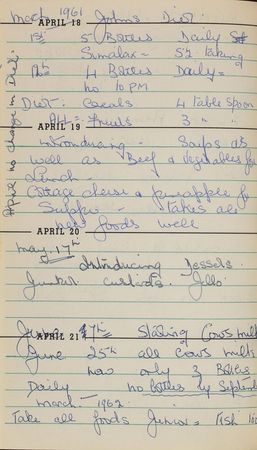 March 1961 Johns Diet.
APRIL 18
1st 5 Bottles Daily
Similax =
4 Bottles Daily =
no 10 PM
Diet: Cereals 4 Table Spoon
APRIL 19
Fruits 3 "
introducing - Soups as
well as Beef & Vegetables for
Lunch -
Cottage cheese & pineapple for
Supper - Takes all
new foods well
April no change in Diet.
APRIL 20
May 17th
Introducing Dessels.
Junket custards. Jello
APRIL 21
June 17th Starting Cows milk
June 25th all Cows milk
has only 3 Bottles
Daily no bottles by September
March - 1962.
Take all foods Junior = Fish